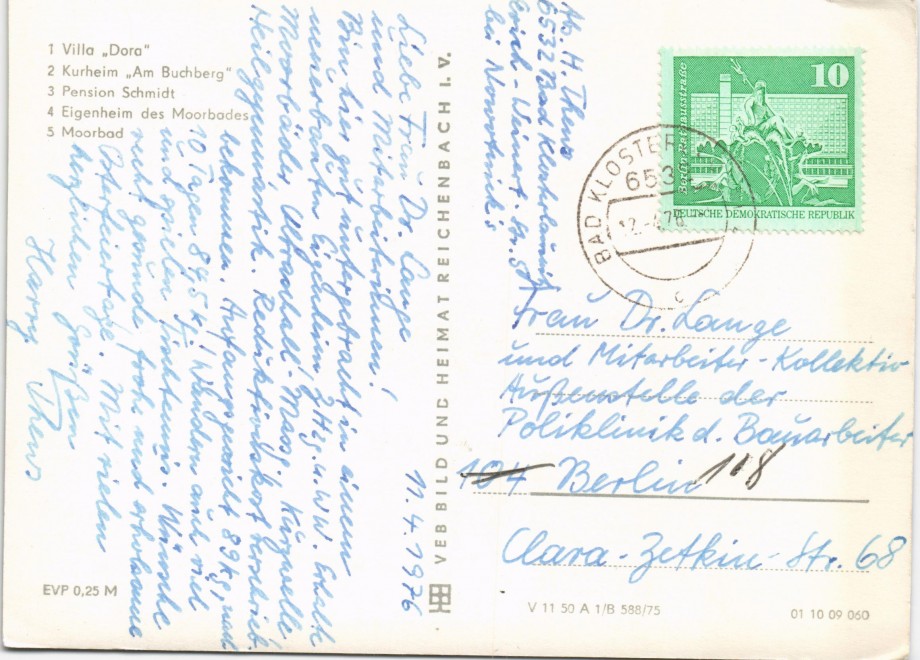 1 Villa „Dora"
2 Kurheim „Am Buchberg"
3 Pension Schmidt
4 Eigenheim des Moorbades
5 Moorbad
11.4.1976
Liebe Frau Dr. Lange
und Mitarbeiterinnen!
Bin hier gut untergebracht in einem
umgebauten Eigenheim, ZHzg. u. WW. Erhalte
Moorbäder, Ultraschall-Massage, Kurzwelle
Heilgymnastik. Reduktionskost
bekommen. Anfangsgewicht 89 kg, nach
10 Tagen 84,5 kg! Wandern auch viel
und spielen Tischtennis. Wünsche
recht gesunde, frohe und erholsame
Ostfeiertage. Mit vielen
herzlichen Grüßen
Harry Thews
EVP 0,25 M
VEB BILD UND HEIMAT REICHENBACH I. V.
Ab. H. Thews
6532 Bad Klosterlausnitz
Erich-Weinert-Str.
bei
10
Berlin Rathausstraße
DEUTSCHE DEMOKRATISCHE REPUBLIK
BAD KLOSTER
653
12.-4.76
c
Frau Dr. Lange
und Mitarbeiter-Kollektiv
Außenstelle der
Poliklinik d. Bauarbeiter
104 Berlin 118
Clara-Zetkin-Str. 68
V 11 50 A 1/B 588/75
01 10 09 060